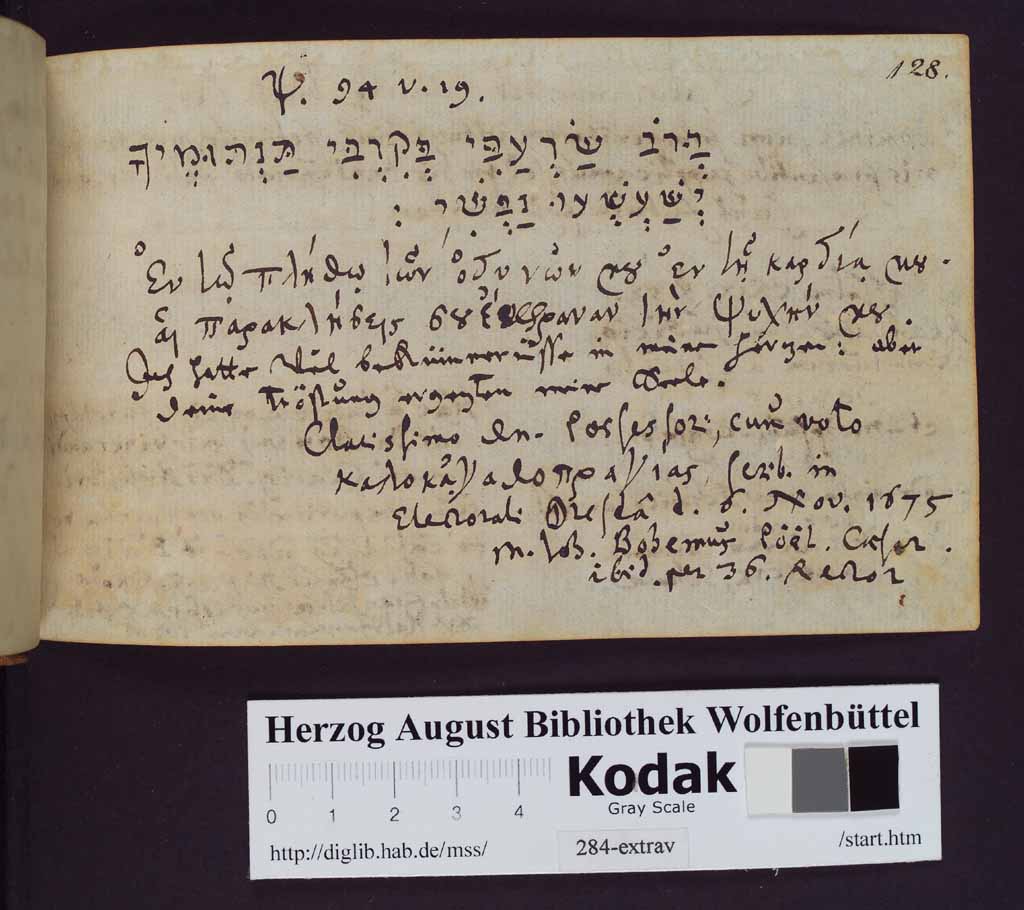 128.
Ψ. 94 v. 19.
בְּרֹב שַׂרְעַפַּי בְּקִרְבִּי תַּנְחוּמֶיךָ
יְשַׁעַשְׁעוּ נַפְשִׁי :
Ἐν τῷ πλήθῳ τῶν ὀδυνῶν μου ἐν τῇ καρδίᾳ μου.
αἱ παρακλήσεις σου εὔφραναν τὴν ψυχήν μου.
Ich hatte viel bekümmernüsse in meinem herzen: aber
deine Tröstung ergezten meine Seele.
Clarissimo Dn. Possessori, cum voto
καλοκἀγαθοπραγίας, scrib. in
Electorali Dresdâ d. 6. Nov. 1675
M. Joh. Bohemus Poët. Caesar.
ibid. per 36. Rector
Herzog August Bibliothek Wolfenbüttel
Kodak
Gray Scale
0 1 2 3 4
http://diglib.hab.de/mss/ 284-extrav /start.htm